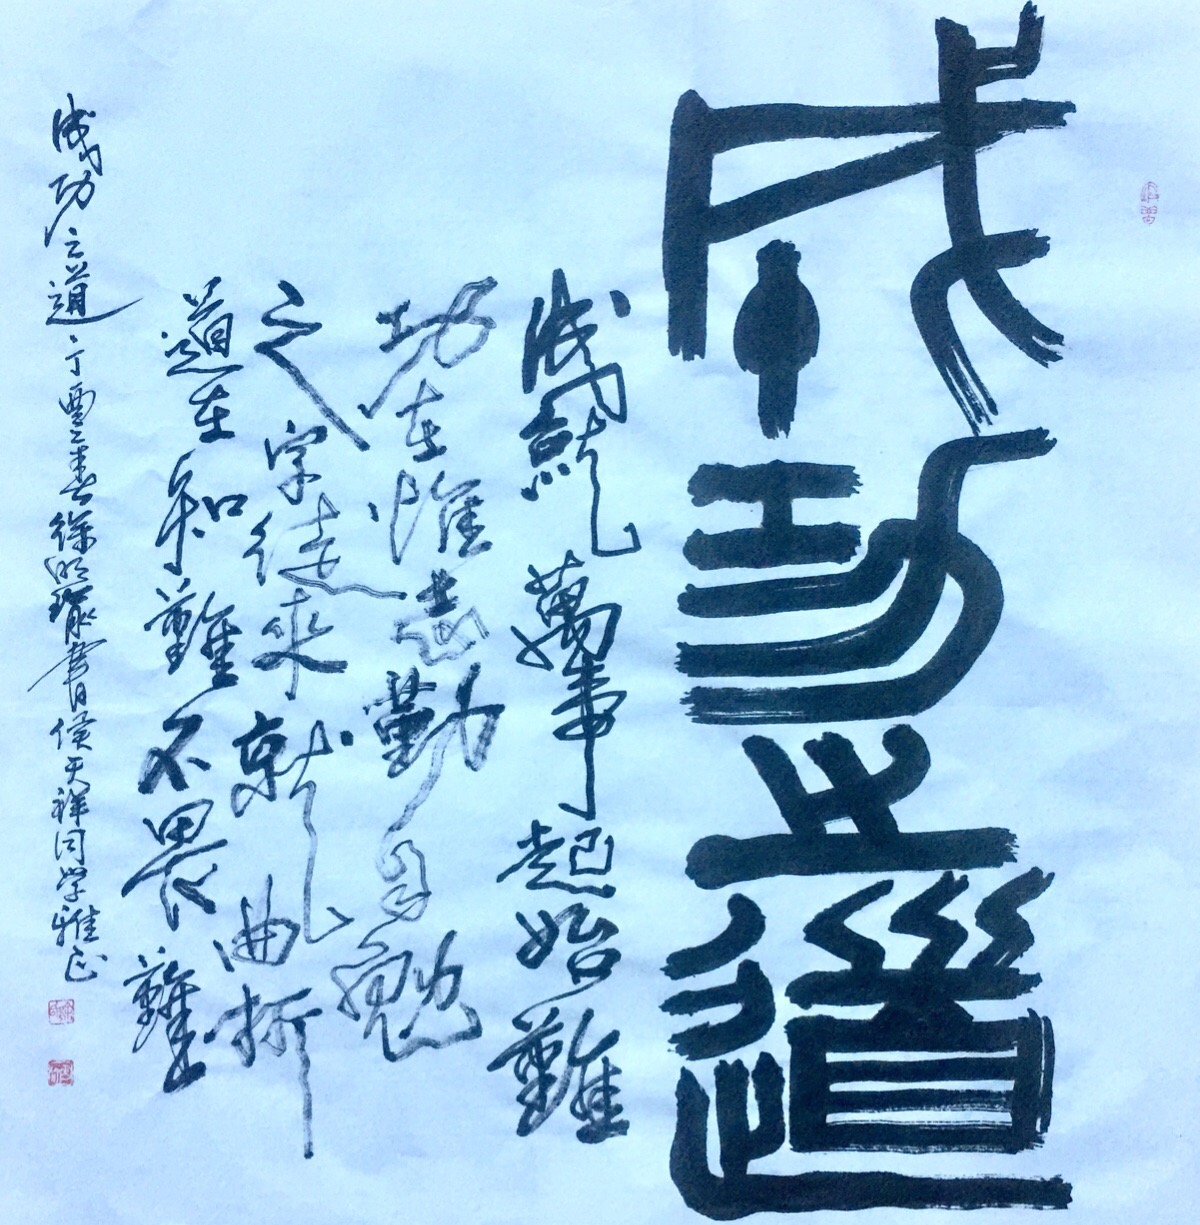 成功之道
成就萬事起始難
功在惟志勤自勉
之字徒來就曲折
道在知難不畏難
成功之道 丁酉春 徐 書 侯天祥同学雅正